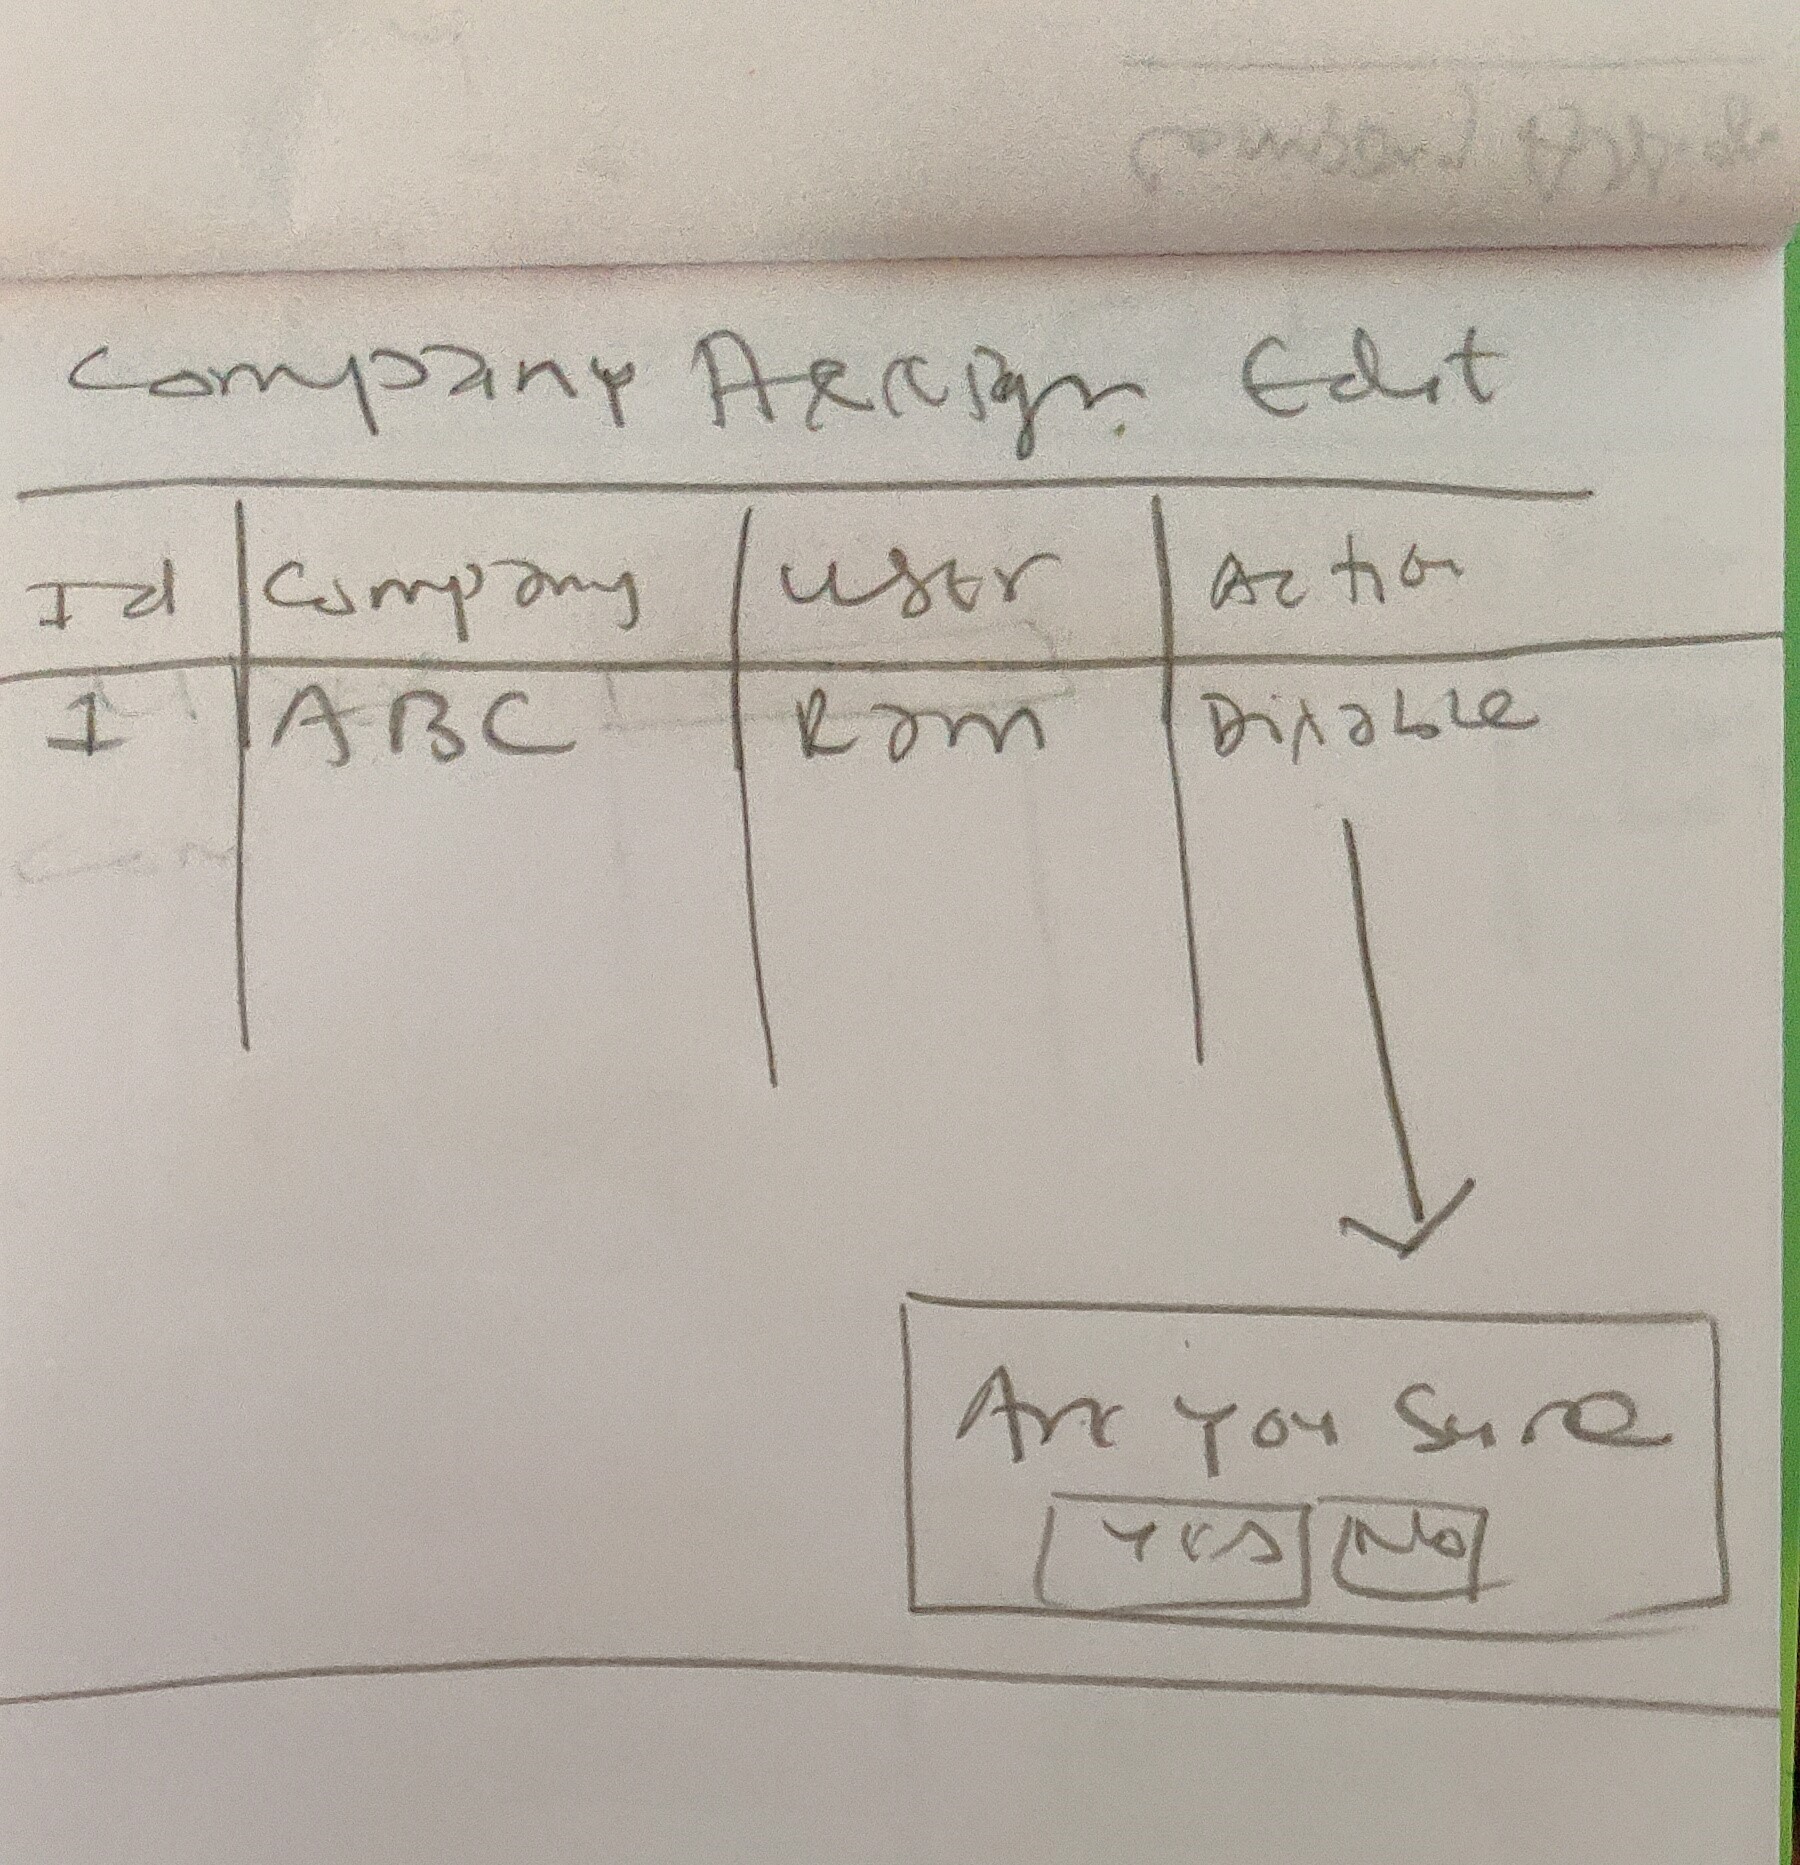 Company Assign Edit
Id Company User Action
1 ABC Ram Disable
Are You Sure
Yes No